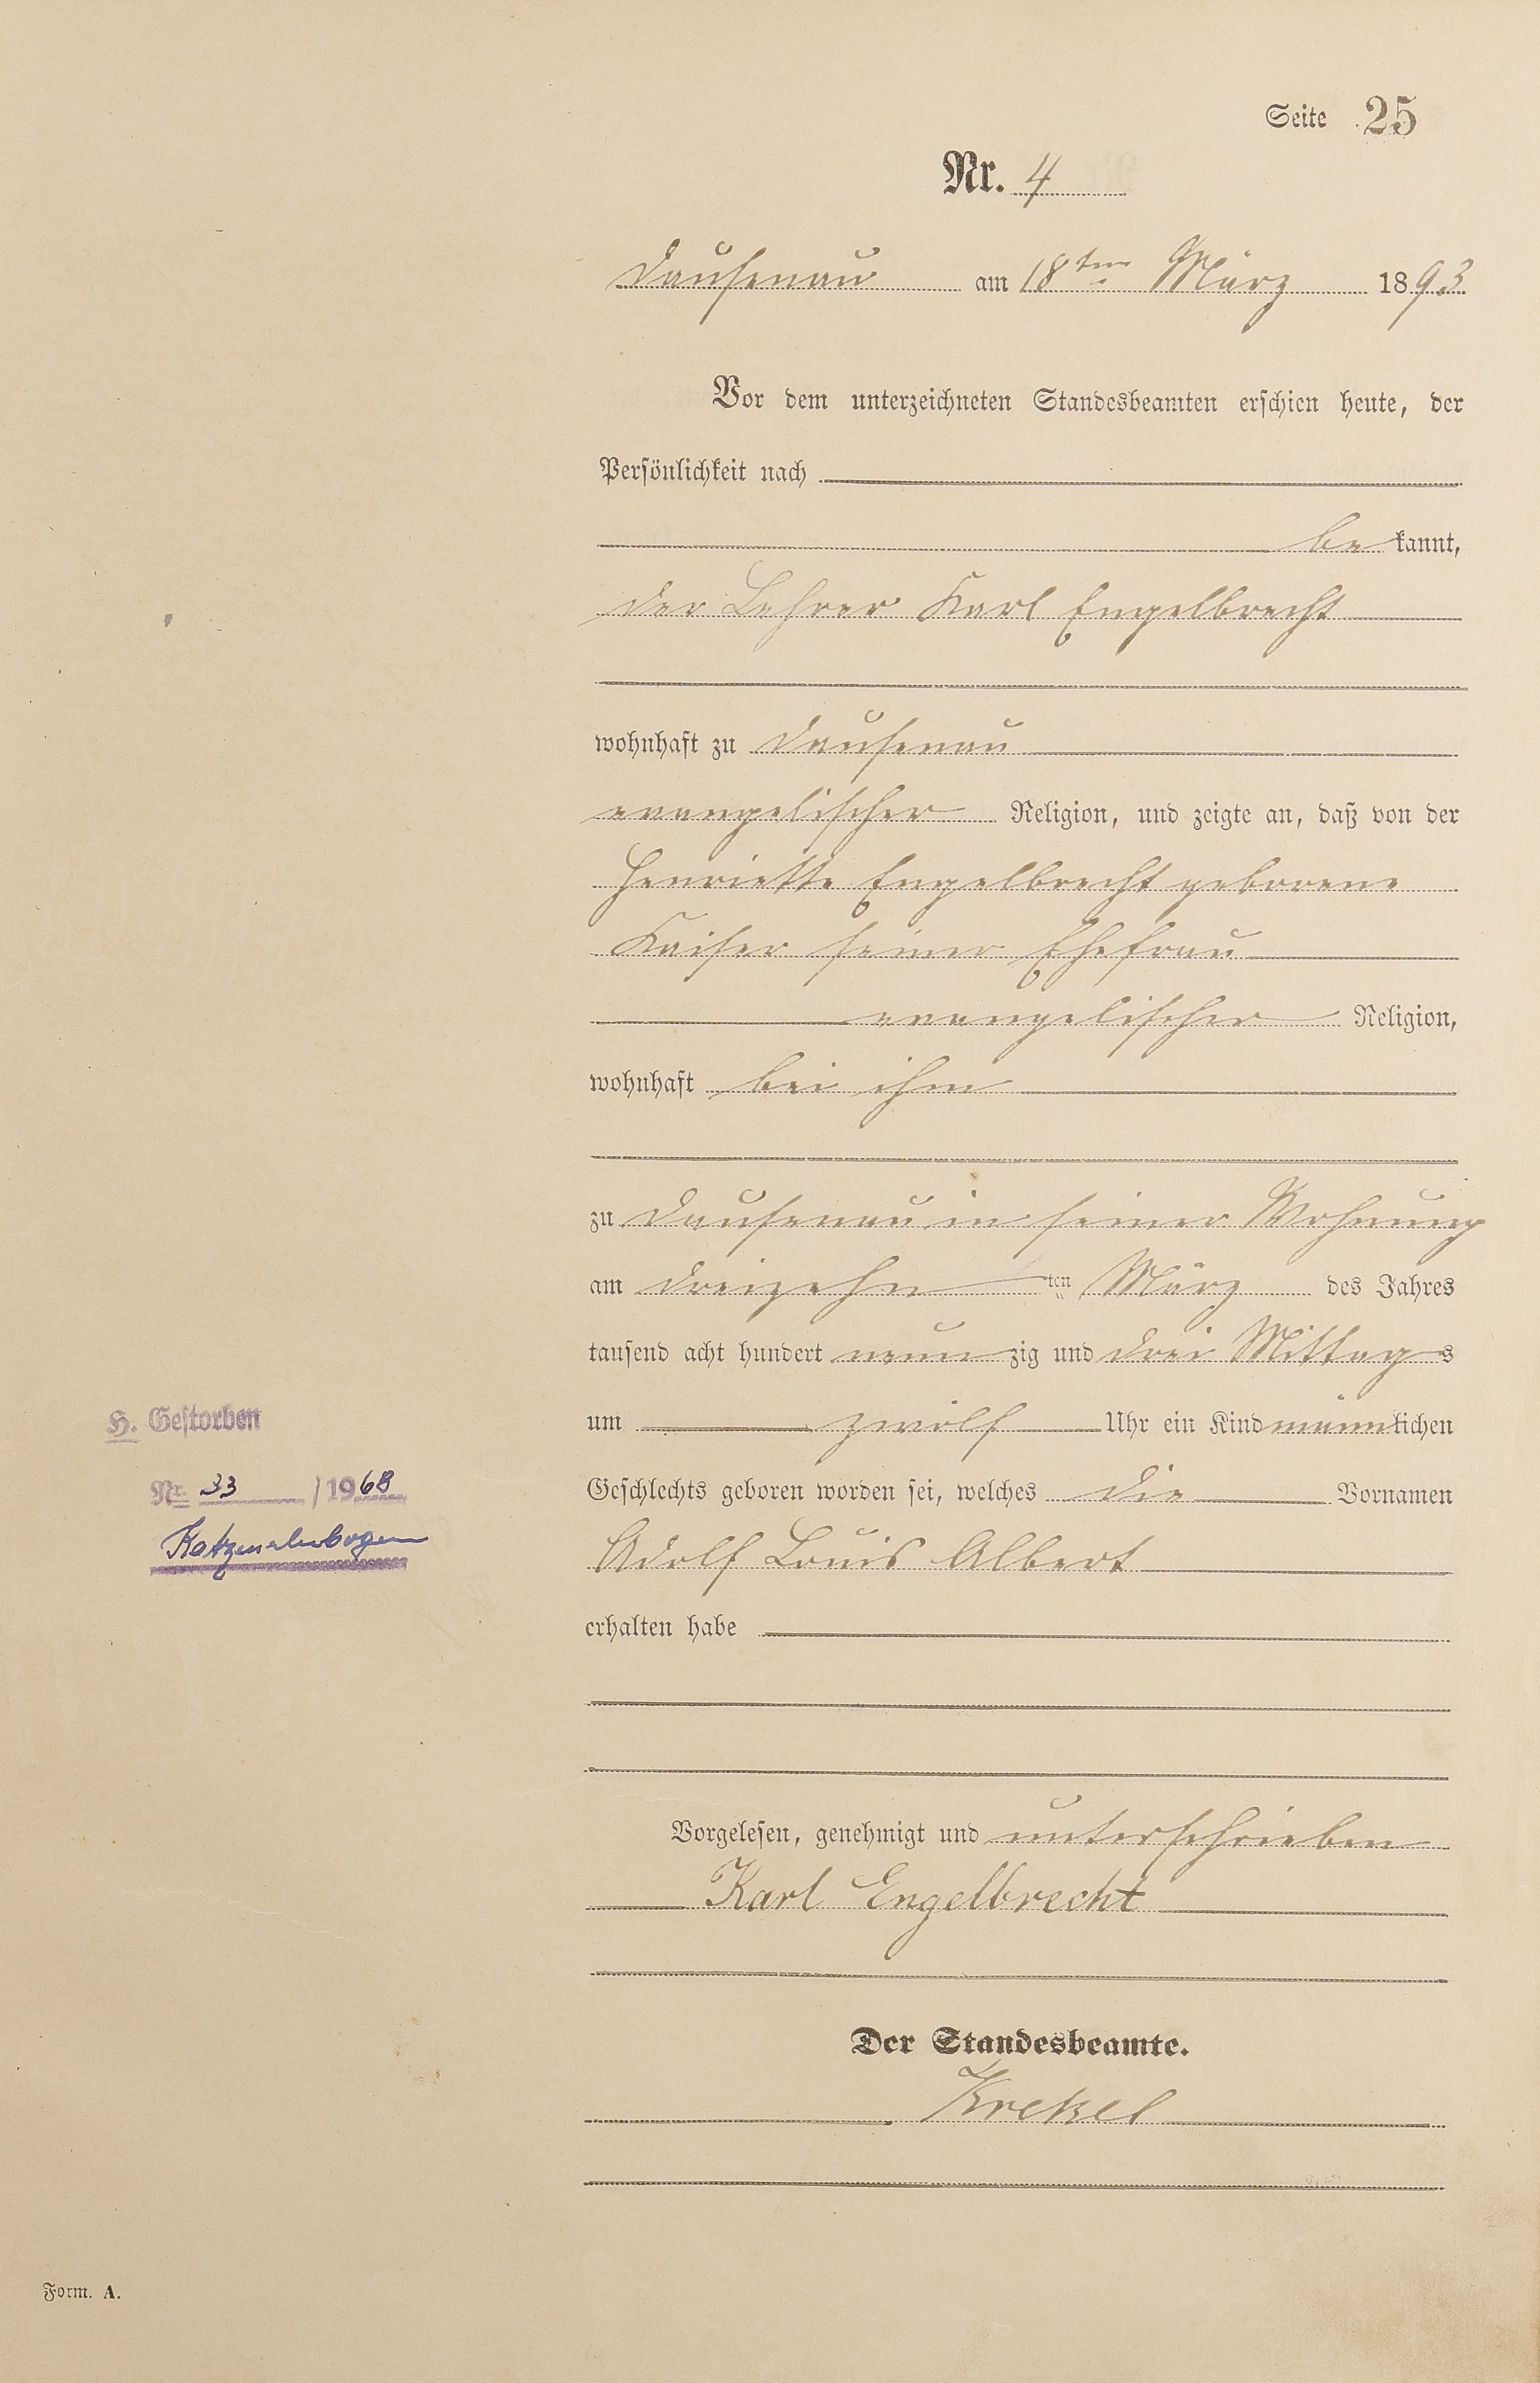 Seite 25
Nr. 4
Dausenau am 18ten März 1893
Vor dem unterzeichneten Standesbeamten erschien heute, der
Persönlichkeit nach
bekannt,
der Lehrer Karl Engelbrecht
wohnhaft zu Dausenau
evangelischer Religion, und zeigte an, daß von der
Henriette Engelbrecht geborene
Kaiser seiner Ehefrau
evangelischer Religion,
wohnhaft bei ihm
zu Dausenau in seiner Wohnung
am dreizehnten März des Jahres
tausend acht hundert neunzig und drei Mittags
um zwölf Uhr ein Kind männlichen
Geschlechts geboren worden sei, welches die Vornamen
Adolf Louis Albert
erhalten habe
Vorgelesen, genehmigt und unterschrieben
Karl Engelbrecht
Der Standesbeamte.
Krekel
H. Gestorben
Nr. 33 /1968
Katzenelnbogen
Form. A.